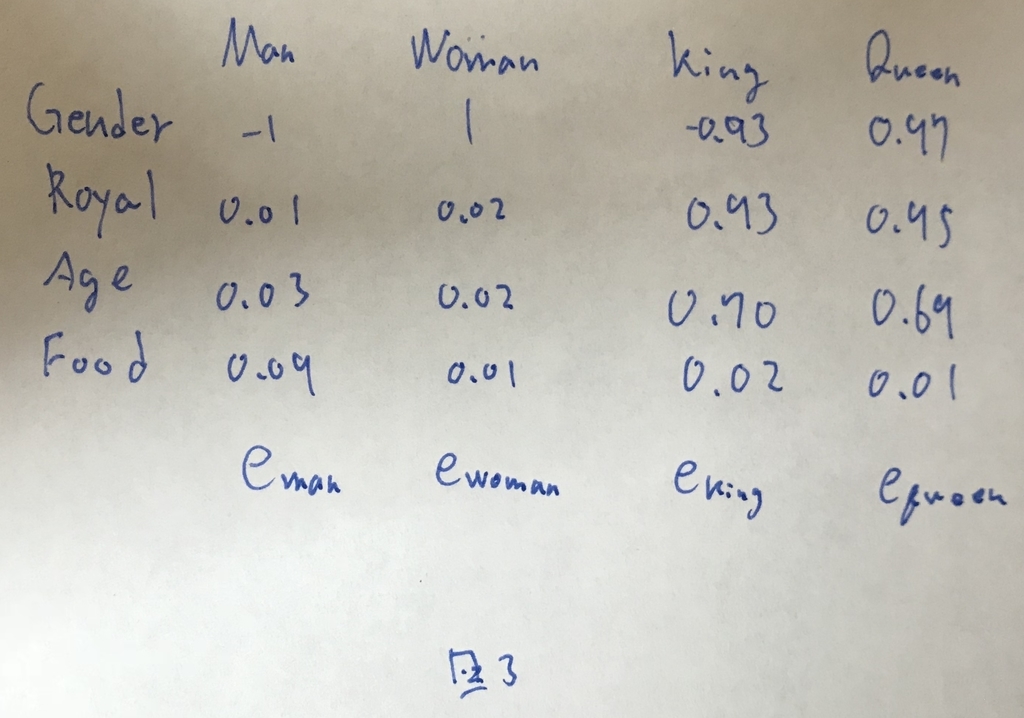 Man Woman King Queen
Gender -1 1 -0.93 0.97
Royal 0.01 0.02 0.93 0.95
Age 0.03 0.02 0.70 0.69
Food 0.09 0.01 0.02 0.01
e man e woman e king e queen
图 3